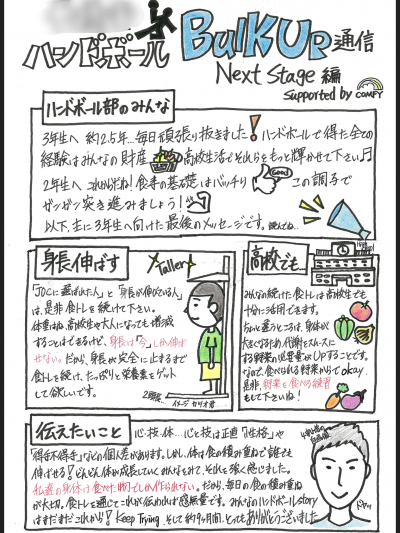 ハンドボール BulkUP 通信
Next Stage 編
Supported by COMFY
ハンドボール部のみんな
3年生へ 約2.5年…毎日頑張り抜きました! ハンドボールで得た全ての
経験はみんなの財産 の高校生活でそれらをもっと輝かせて下さい♫
2年生へ これからだね! 食事の基礎はバッチリ Good この調子で
ガンガン突き進みましょう!
以下、主に3年生へ向けた最後のメッセージです。読んでね…
身長伸ばす
Taller
「JOCに選ばれた人」と「身長が伸びている人」
は、是非食トレを続けて下さい。
体重はね、高校生や大人になっても増減
することはできるけど、身長は「今」しか伸ば
せない。だから、身長が完全に止まるまで
食トレを続け、たっぷりと栄養素をゲット
して欲しいです。
2階席 イメージ
高校でも
みんなの続けた食トレは高校生でも
十分に活用できます。
ちょっと違うところは、身体が
大きくなるため代謝をスムーズに
する野菜の必要量がUPすることです。
なので、食べられる野菜からでokay
是非、野菜を食べる練習
もして下さいね!
伝えたいこと
心・技・体…心と技は正直「性格」や
「得手不得手」などの個人差があります。しかし、体は食の積み重ねで誰でも
伸ばせる! どんどん体が成長していくみんなをみて、それを強く感じました。
私達の身体は食べた物でしか作られない。だから、毎日の食の積み重ね
が大切。食トレを通じてこれが伝われば感無量です。みんなのハンドボールstory
はまだまだこれから! Keep Trying そして約9ヶ月間、とってもありがとうございました